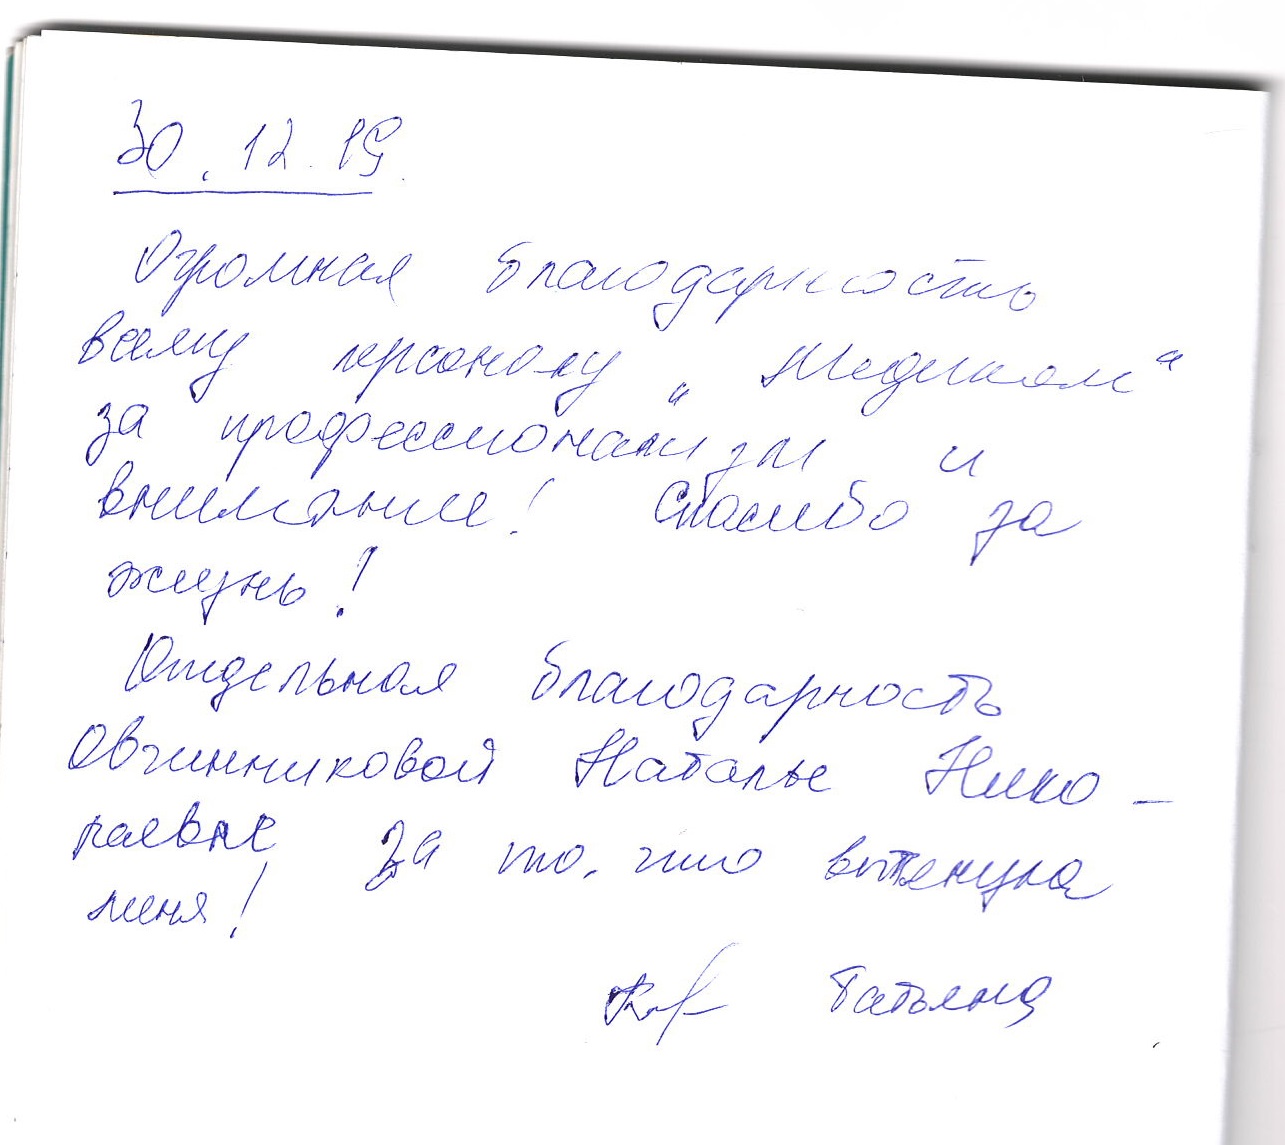 30.12.19
Огромная благодарность
всему персоналу „Медиком“
за профессионализм и
внимание! Спасибо за
жизнь!
Отдельная благодарность
Овчинниковой Наталье Нико-
лаевне за то, что вытянула
меня!
Татьяна